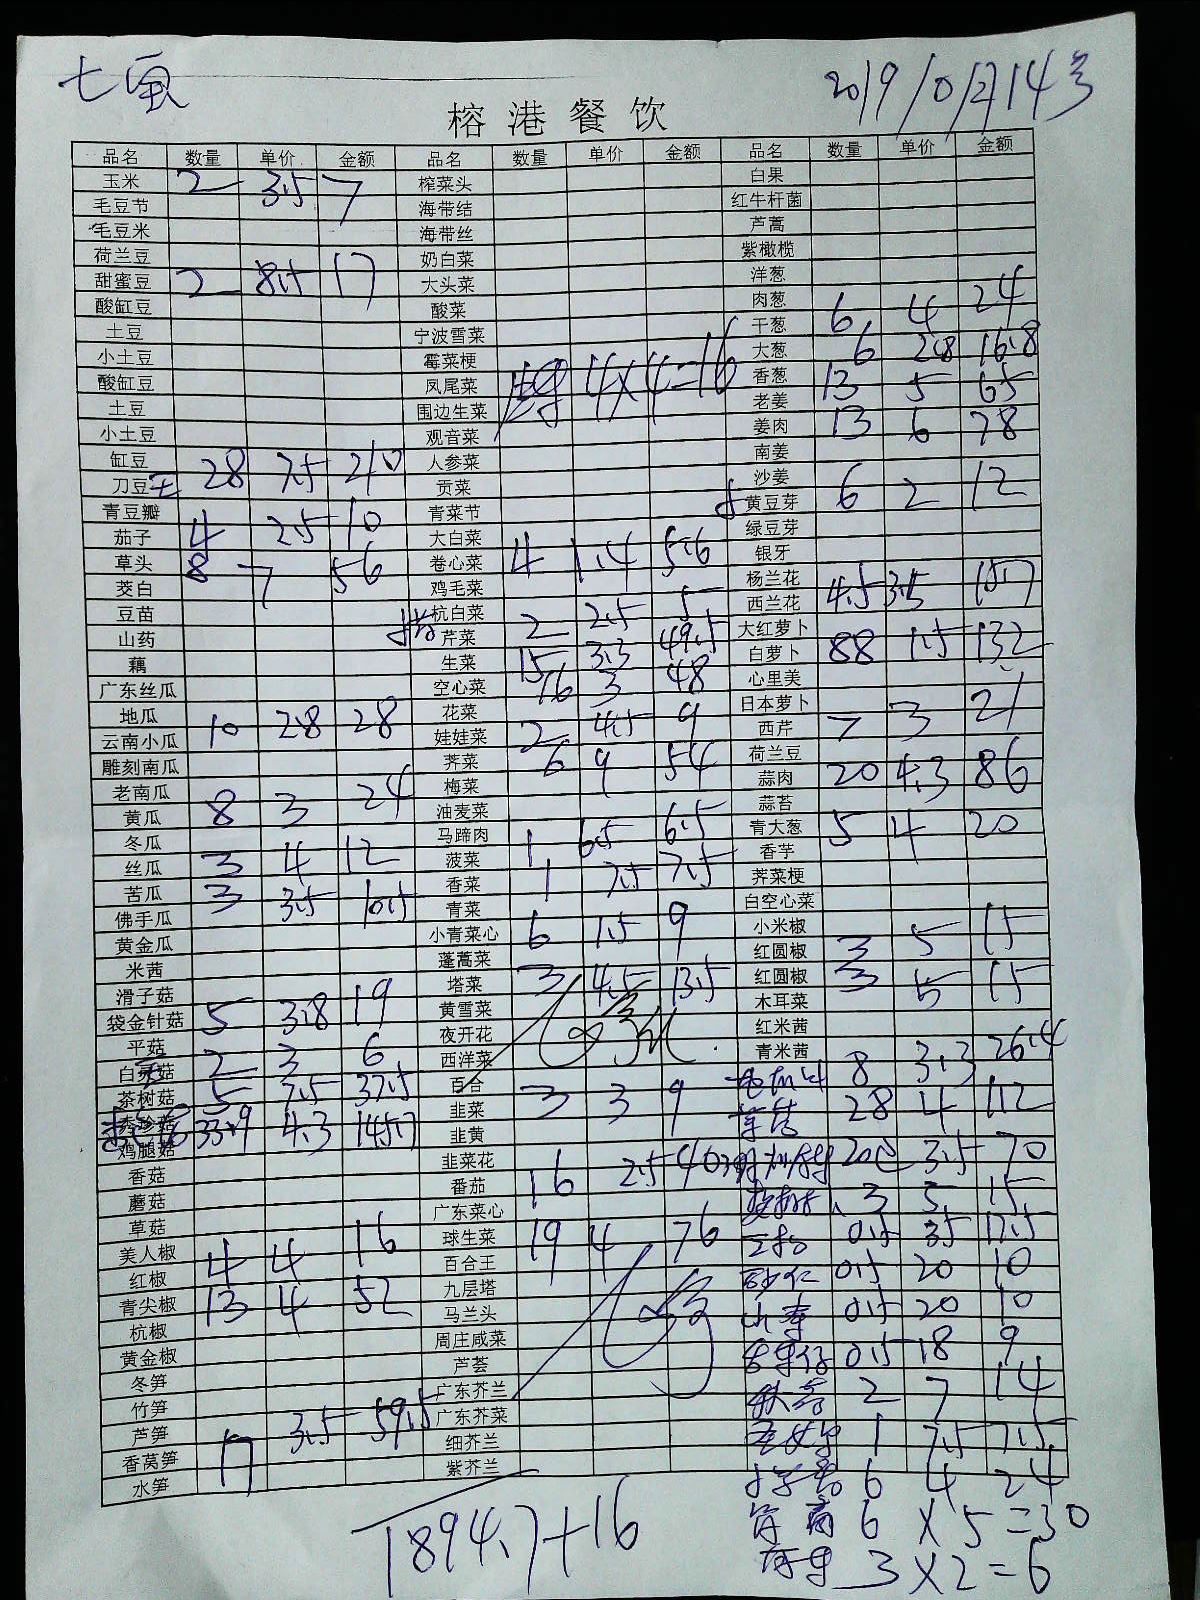 2019/10/月14号
榕港餐饮
品名 数量 单价 金额 品名 数量 单价 金额 品名 数量 单价 金额
玉米 2 3.5 7 榨菜头 白果
毛豆节 海带结 红牛杆菌
毛豆米 海带丝 芦蒿
荷兰豆 奶白菜 紫橄榄
甜蜜豆 2 8.5 17 大头菜 洋葱
酸缸豆 酸菜 肉葱 6 4 24
土豆 宁波雪菜 干葱
小土豆 霉菜梗 大葱 6 2.8 16.8
酸缸豆 凤尾菜 4×4=16 香葱 13 5 65
土豆 围边生菜 老姜
小土豆 观音菜 姜肉 13 6 78
缸豆 28 7.5 210 人参菜 南姜
刀豆 贡菜 沙姜
青豆瓣 青菜节 黄豆芽 6 2 12
茄子 4 2.5 10 大白菜 绿豆芽
草头 8 7 56 卷心菜 4 1.4 5.6 银牙
茭白 鸡毛菜 杨兰花
豆苗 杭白菜 2 2.5 5 西兰花 4.5 3.5 15.7
山药 芹菜 大红萝卜
藕 生菜 15 3.3 49.5 白萝卜 88 1.5 132
广东丝瓜 空心菜 16 3 48 心里美
地瓜 10 2.8 28 花菜 2 4.5 9 日本萝卜
云南小瓜 娃娃菜 西芹 7 3 21
雕刻南瓜 荠菜 6 9 54 荷兰豆
老南瓜 梅菜 蒜肉 20 4.3 86
黄瓜 8 3 24 油麦菜 蒜苔
冬瓜 马蹄肉 1 6.5 6.5 青大葱 5 4 20
丝瓜 3 4 12 菠菜 香芋
苦瓜 3 3.5 10.5 香菜 1 7.5 7.5 荠菜梗
佛手瓜 青菜 白空心菜
黄金瓜 小青菜心 6 1.5 9 小米椒 3 5 15
米茜 蓬蒿菜 红圆椒
滑子菇 塔菜 3 4.5 13.5 红圆椒 3 5 15
袋金针菇 5 3.8 19 黄雪菜 木耳菜
平菇 夜开花 红米茜
白灵菇 2 3 6 西洋菜 青米茜
茶树菇 5 7.5 37.5 百合 8 3.3 26.4
秀珍菇 33.9 4.3 145.7 韭菜 3 3 9 28 4 112
鸡腿菇 韭黄
香菇 韭菜花 20 3.5 70
蘑菇 番茄 16 2.5 40 3 5 15
草菇 广东菜心
美人椒 球生菜 19 4 76 0.5 35 17.5
红椒 4 4 16 百合王 砂仁 0.5 20 10
青尖椒 13 4 52 九层塔
杭椒 马兰头 0.5 20 10
黄金椒 周庄咸菜 0.5 18 9
冬笋 芦荟
竹笋 广东芥兰 2 7 14
芦笋 广东芥菜
香莴笋 17 3.5 59.5 细芥兰 1 7.5 7.5
水笋 紫芥兰 6 4 24
1894.7+16
6×5=30
3×2=6